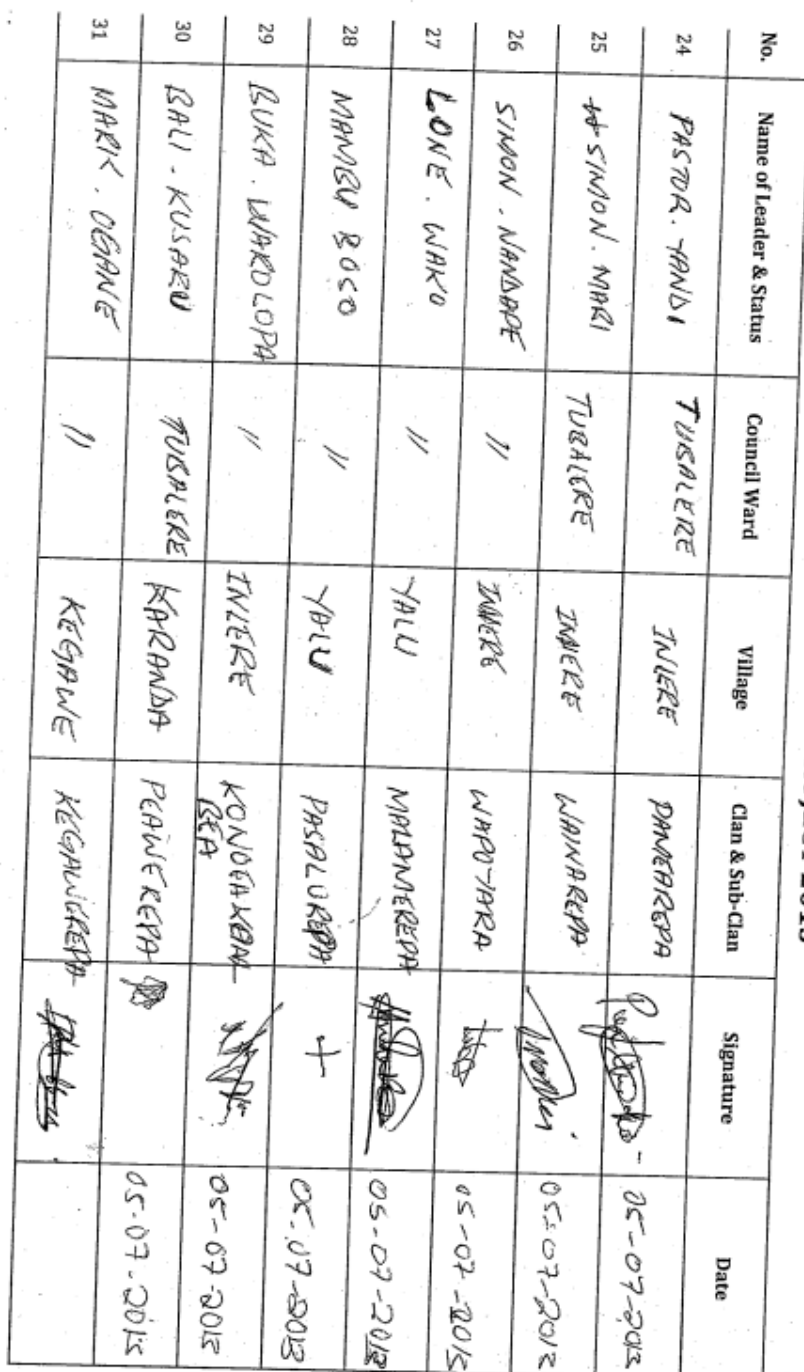 2013
No. Name of Leader & Status Council Ward Village Clan & Sub-Clan Signature Date
24 PASTOR. YANDI TUBALERE INIERE PAMEAREPA 05-07-2013
25 SIMON. MARI TUBALERE INIERE WAINAREPA 05-07-2013
26 SIMON. NANDAPE " INIERE WAPOYARA 05-07-2013
27 LONE. WAKO " YALU MALAMEREPA 05-07-2013
28 MAMBU BOSO " YALU PASALUREPA + 05.07-2013
29 BUKA. WAROLOPA " INIERE KONDEAKOM
BEA 05-07-2013
30 BALI. KUSARU TUBALERE KARANDA PEAWEREPA 05-07-2013
31 MARK. OGANE " KEGAWE KEGAWEREPA